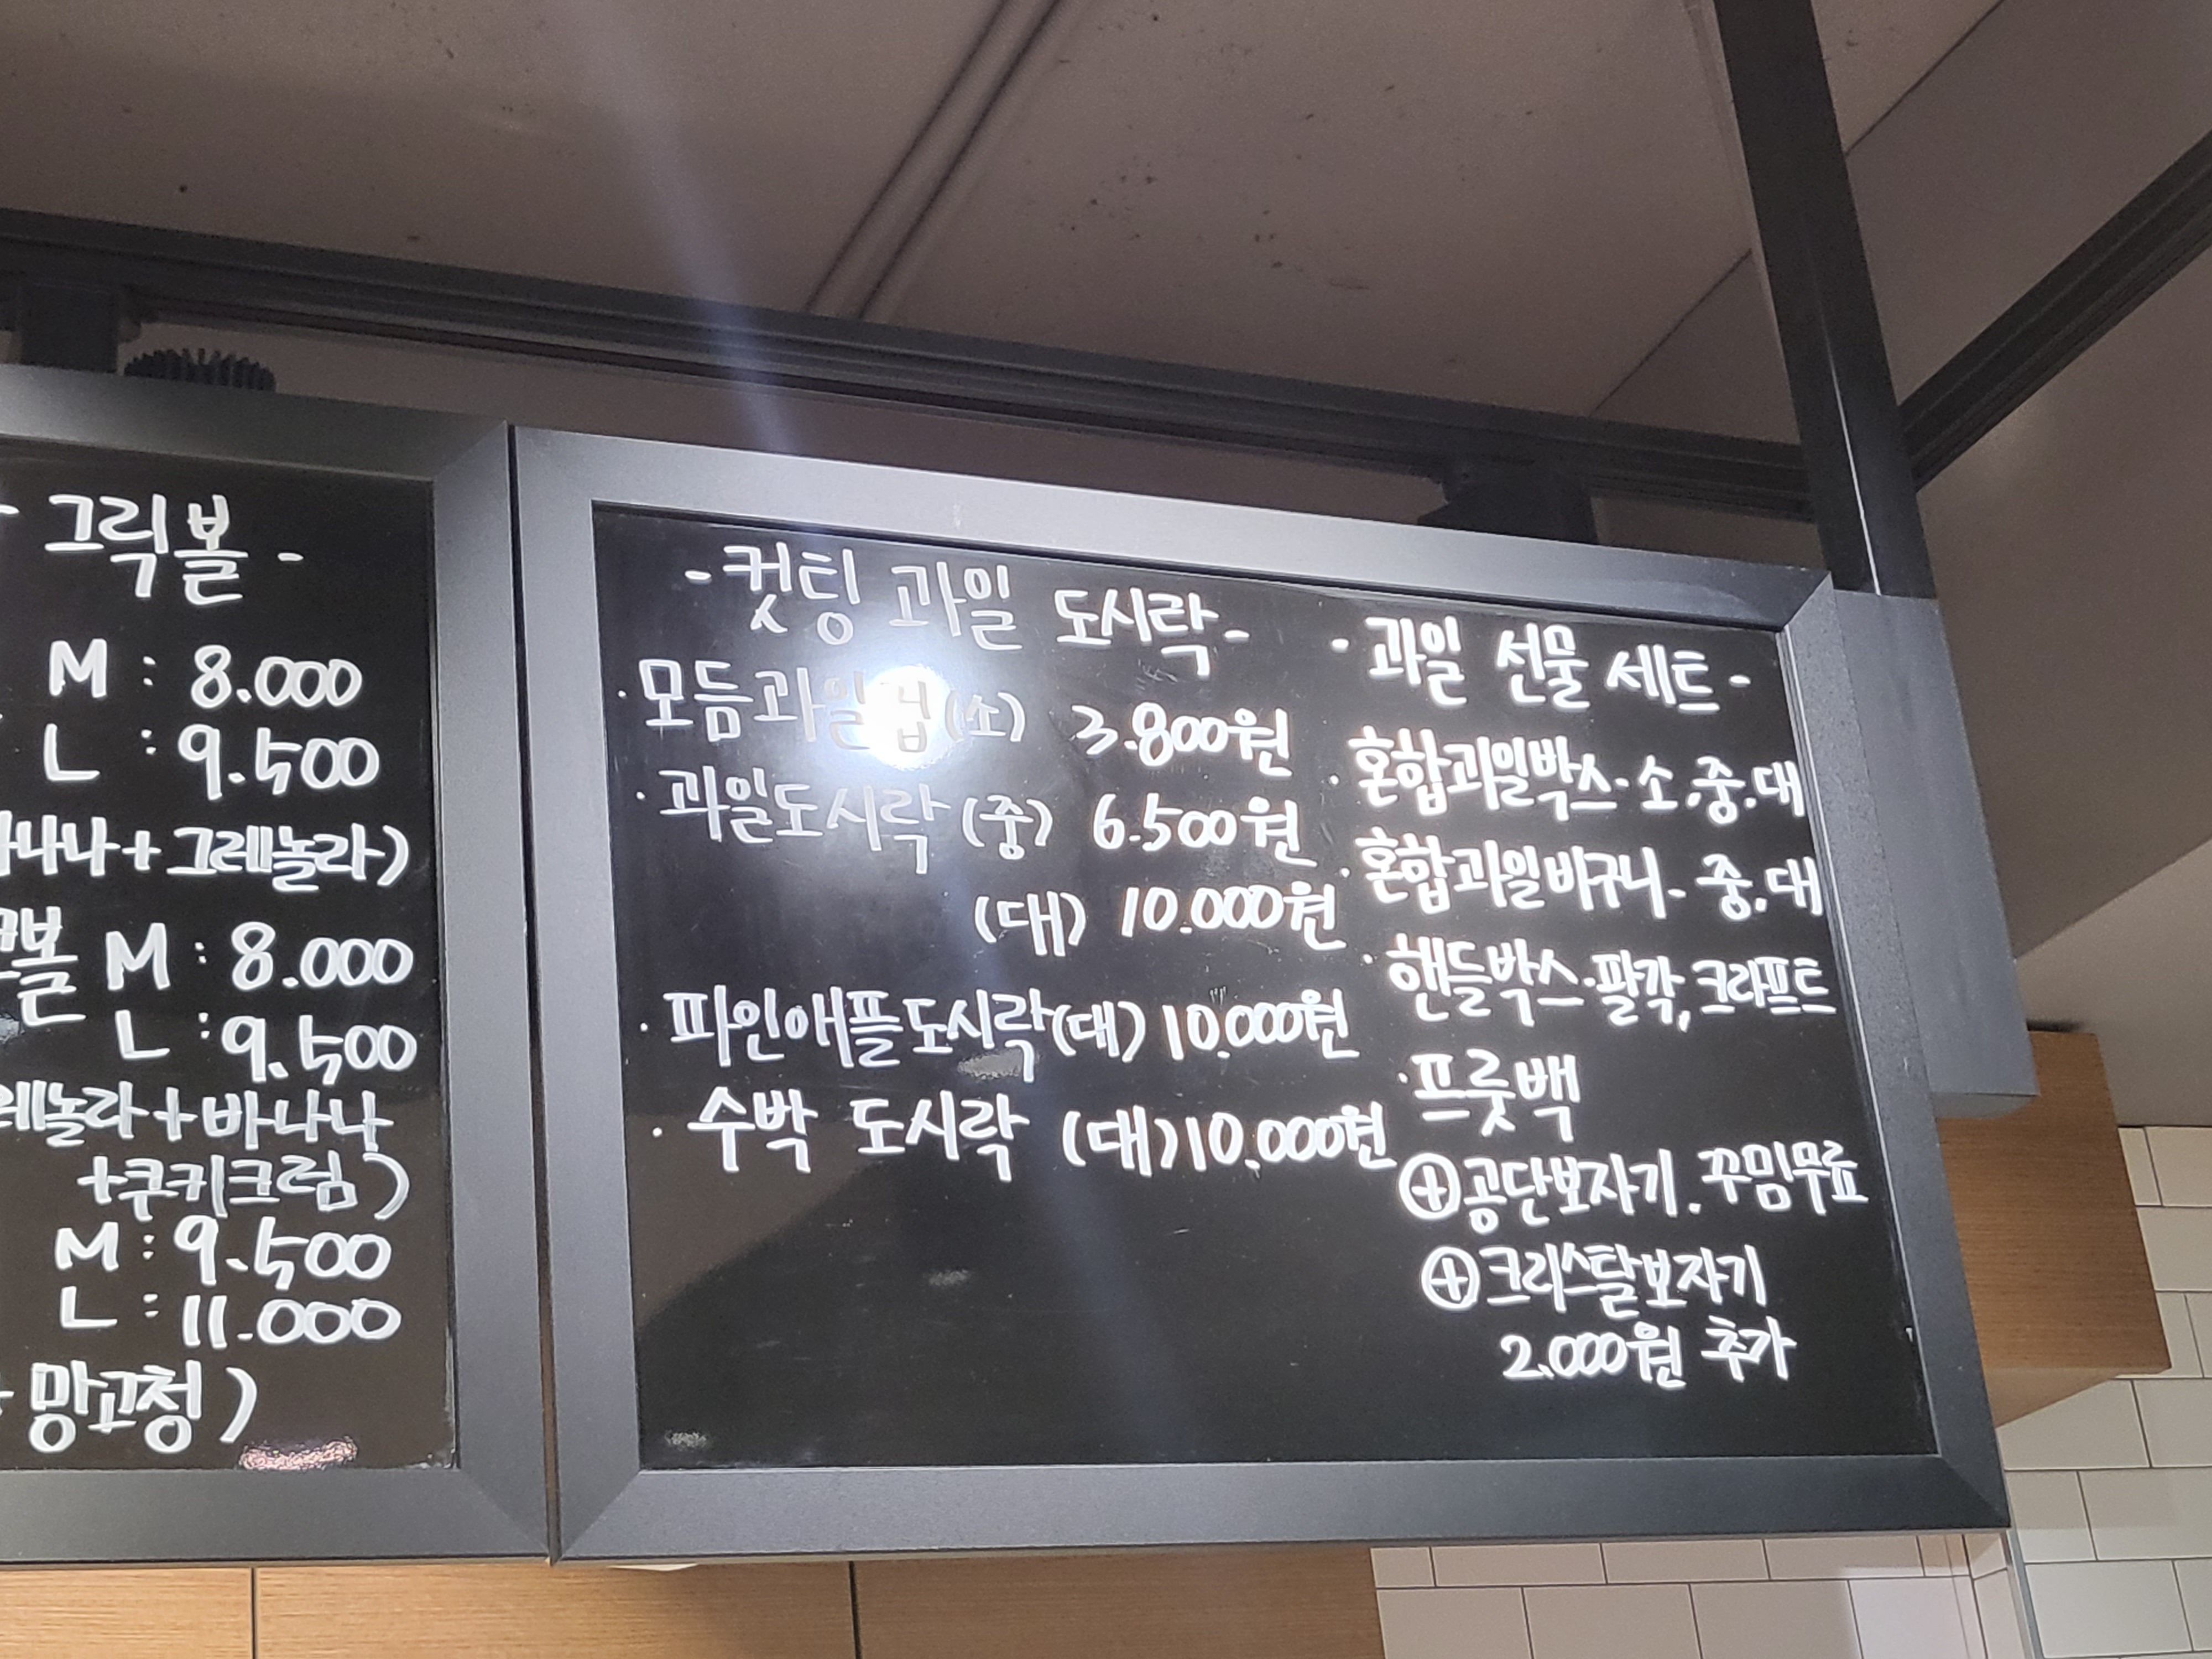 그릭볼 -
M : 8.000
L : 9.500
나나+그레놀라)
볼 M : 8.000
L : 9.500
레놀라+바나나
+쿠키크림)
M : 9.500
L : 11.000
망고청)
-컷팅 과일 도시락-
·모듬과일컵(소) 3.800원
·과일도시락(중) 6.500원
(대) 10.000원
·파인애플도시락(대) 10.000원
·수박 도시락 (대)10.000원
-과일 선물 세트-
·혼합과일박스-소.중.대
·혼합과일바구니-중.대
·핸들박스-팔각,크라프트
·프룻백
⊕공단보자기.꾸밈무료
⊕크리스탈보자기
2.000원 추가